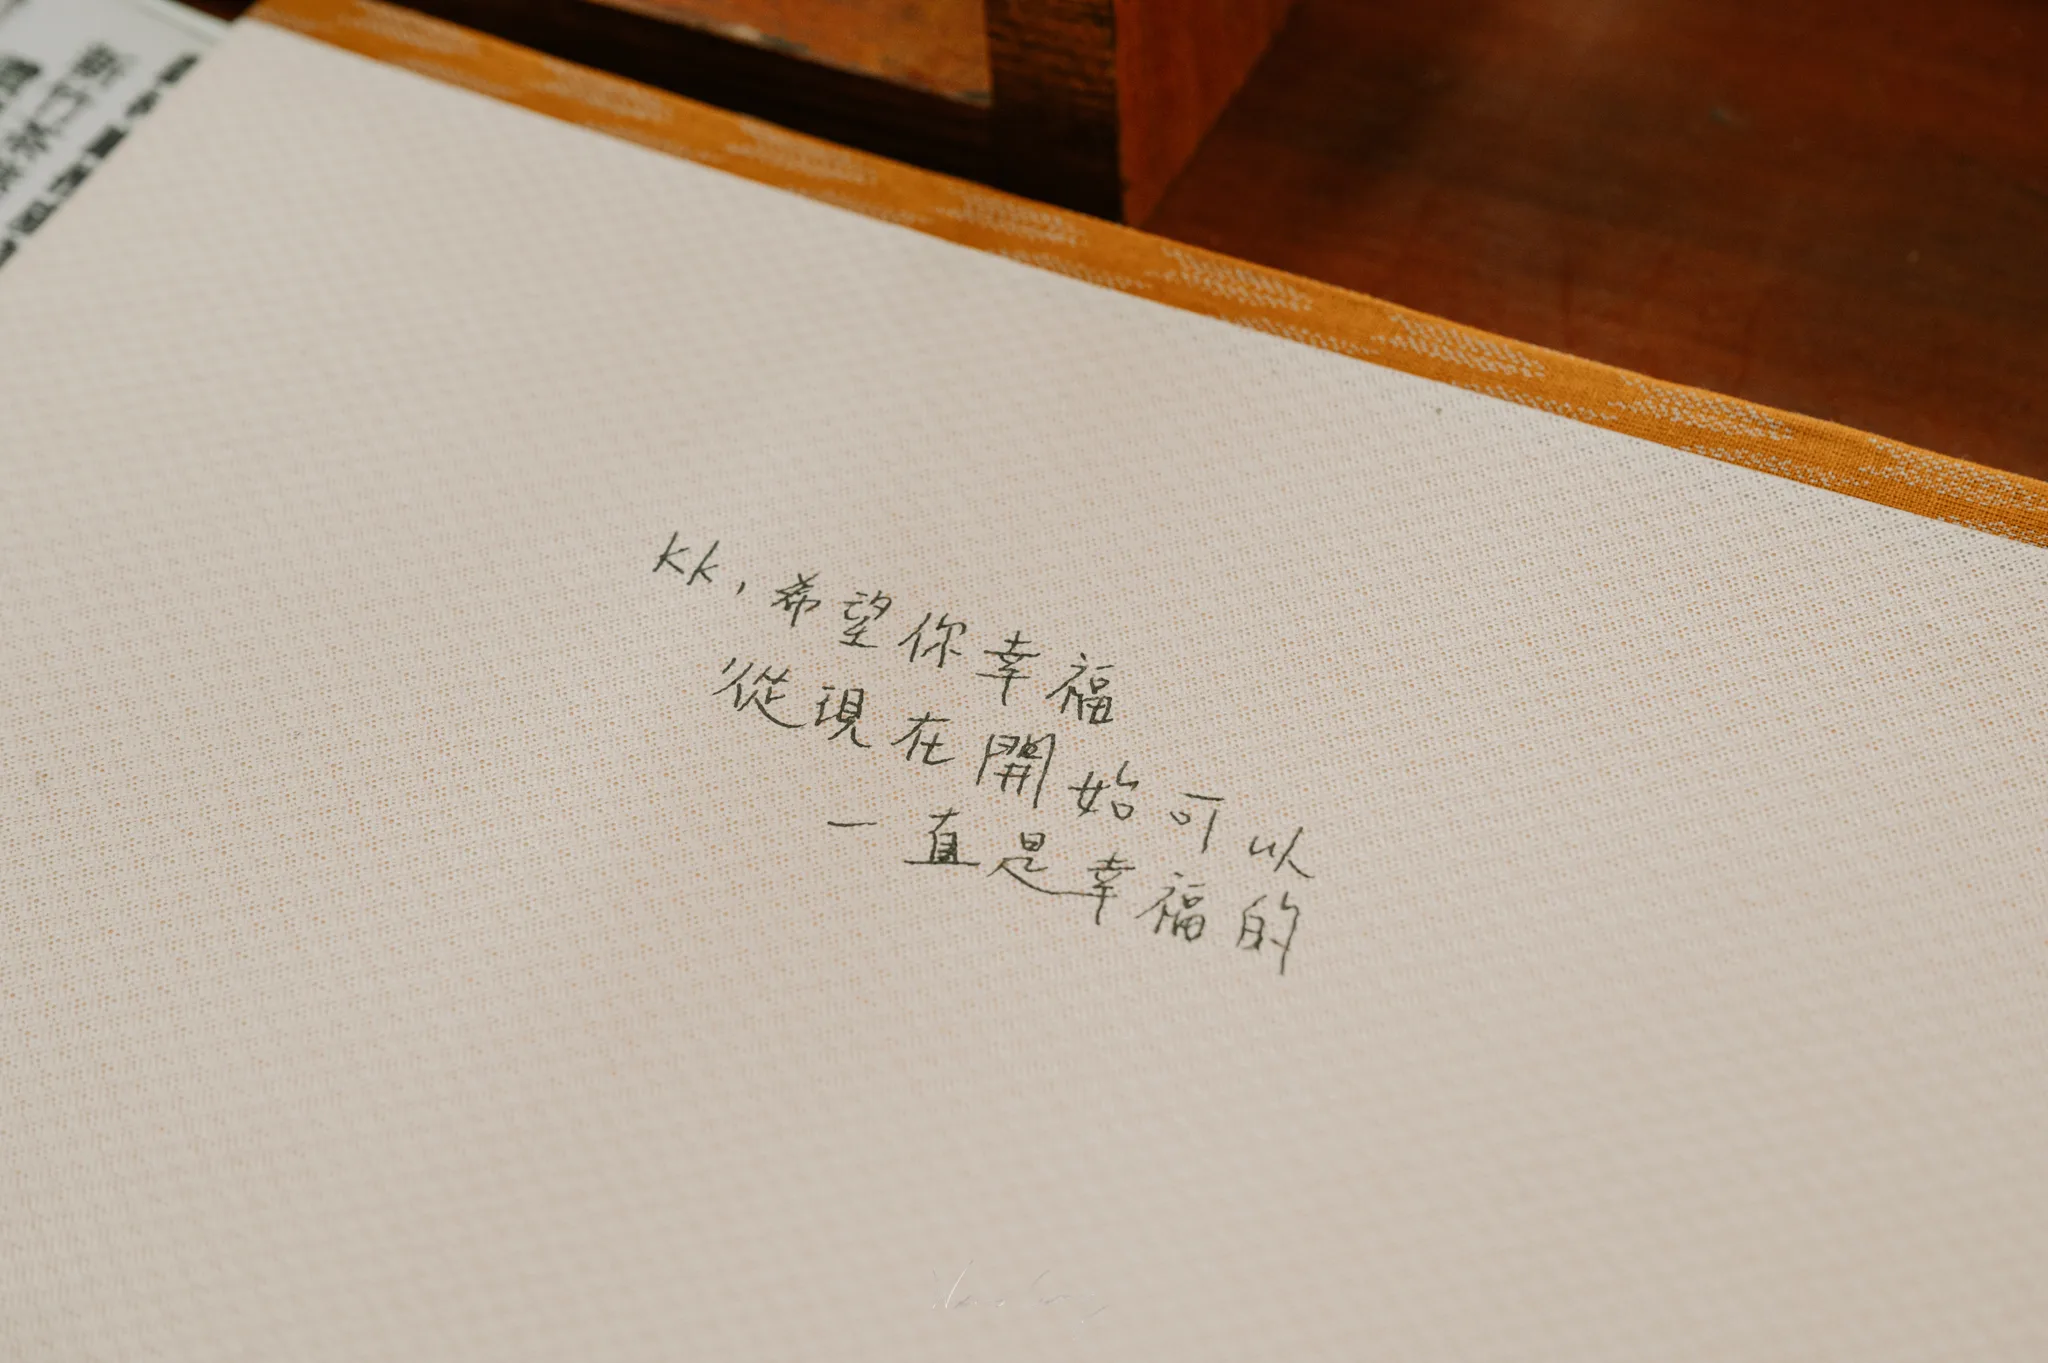 KK,希望你幸福
從現在開始可以
一直是幸福的